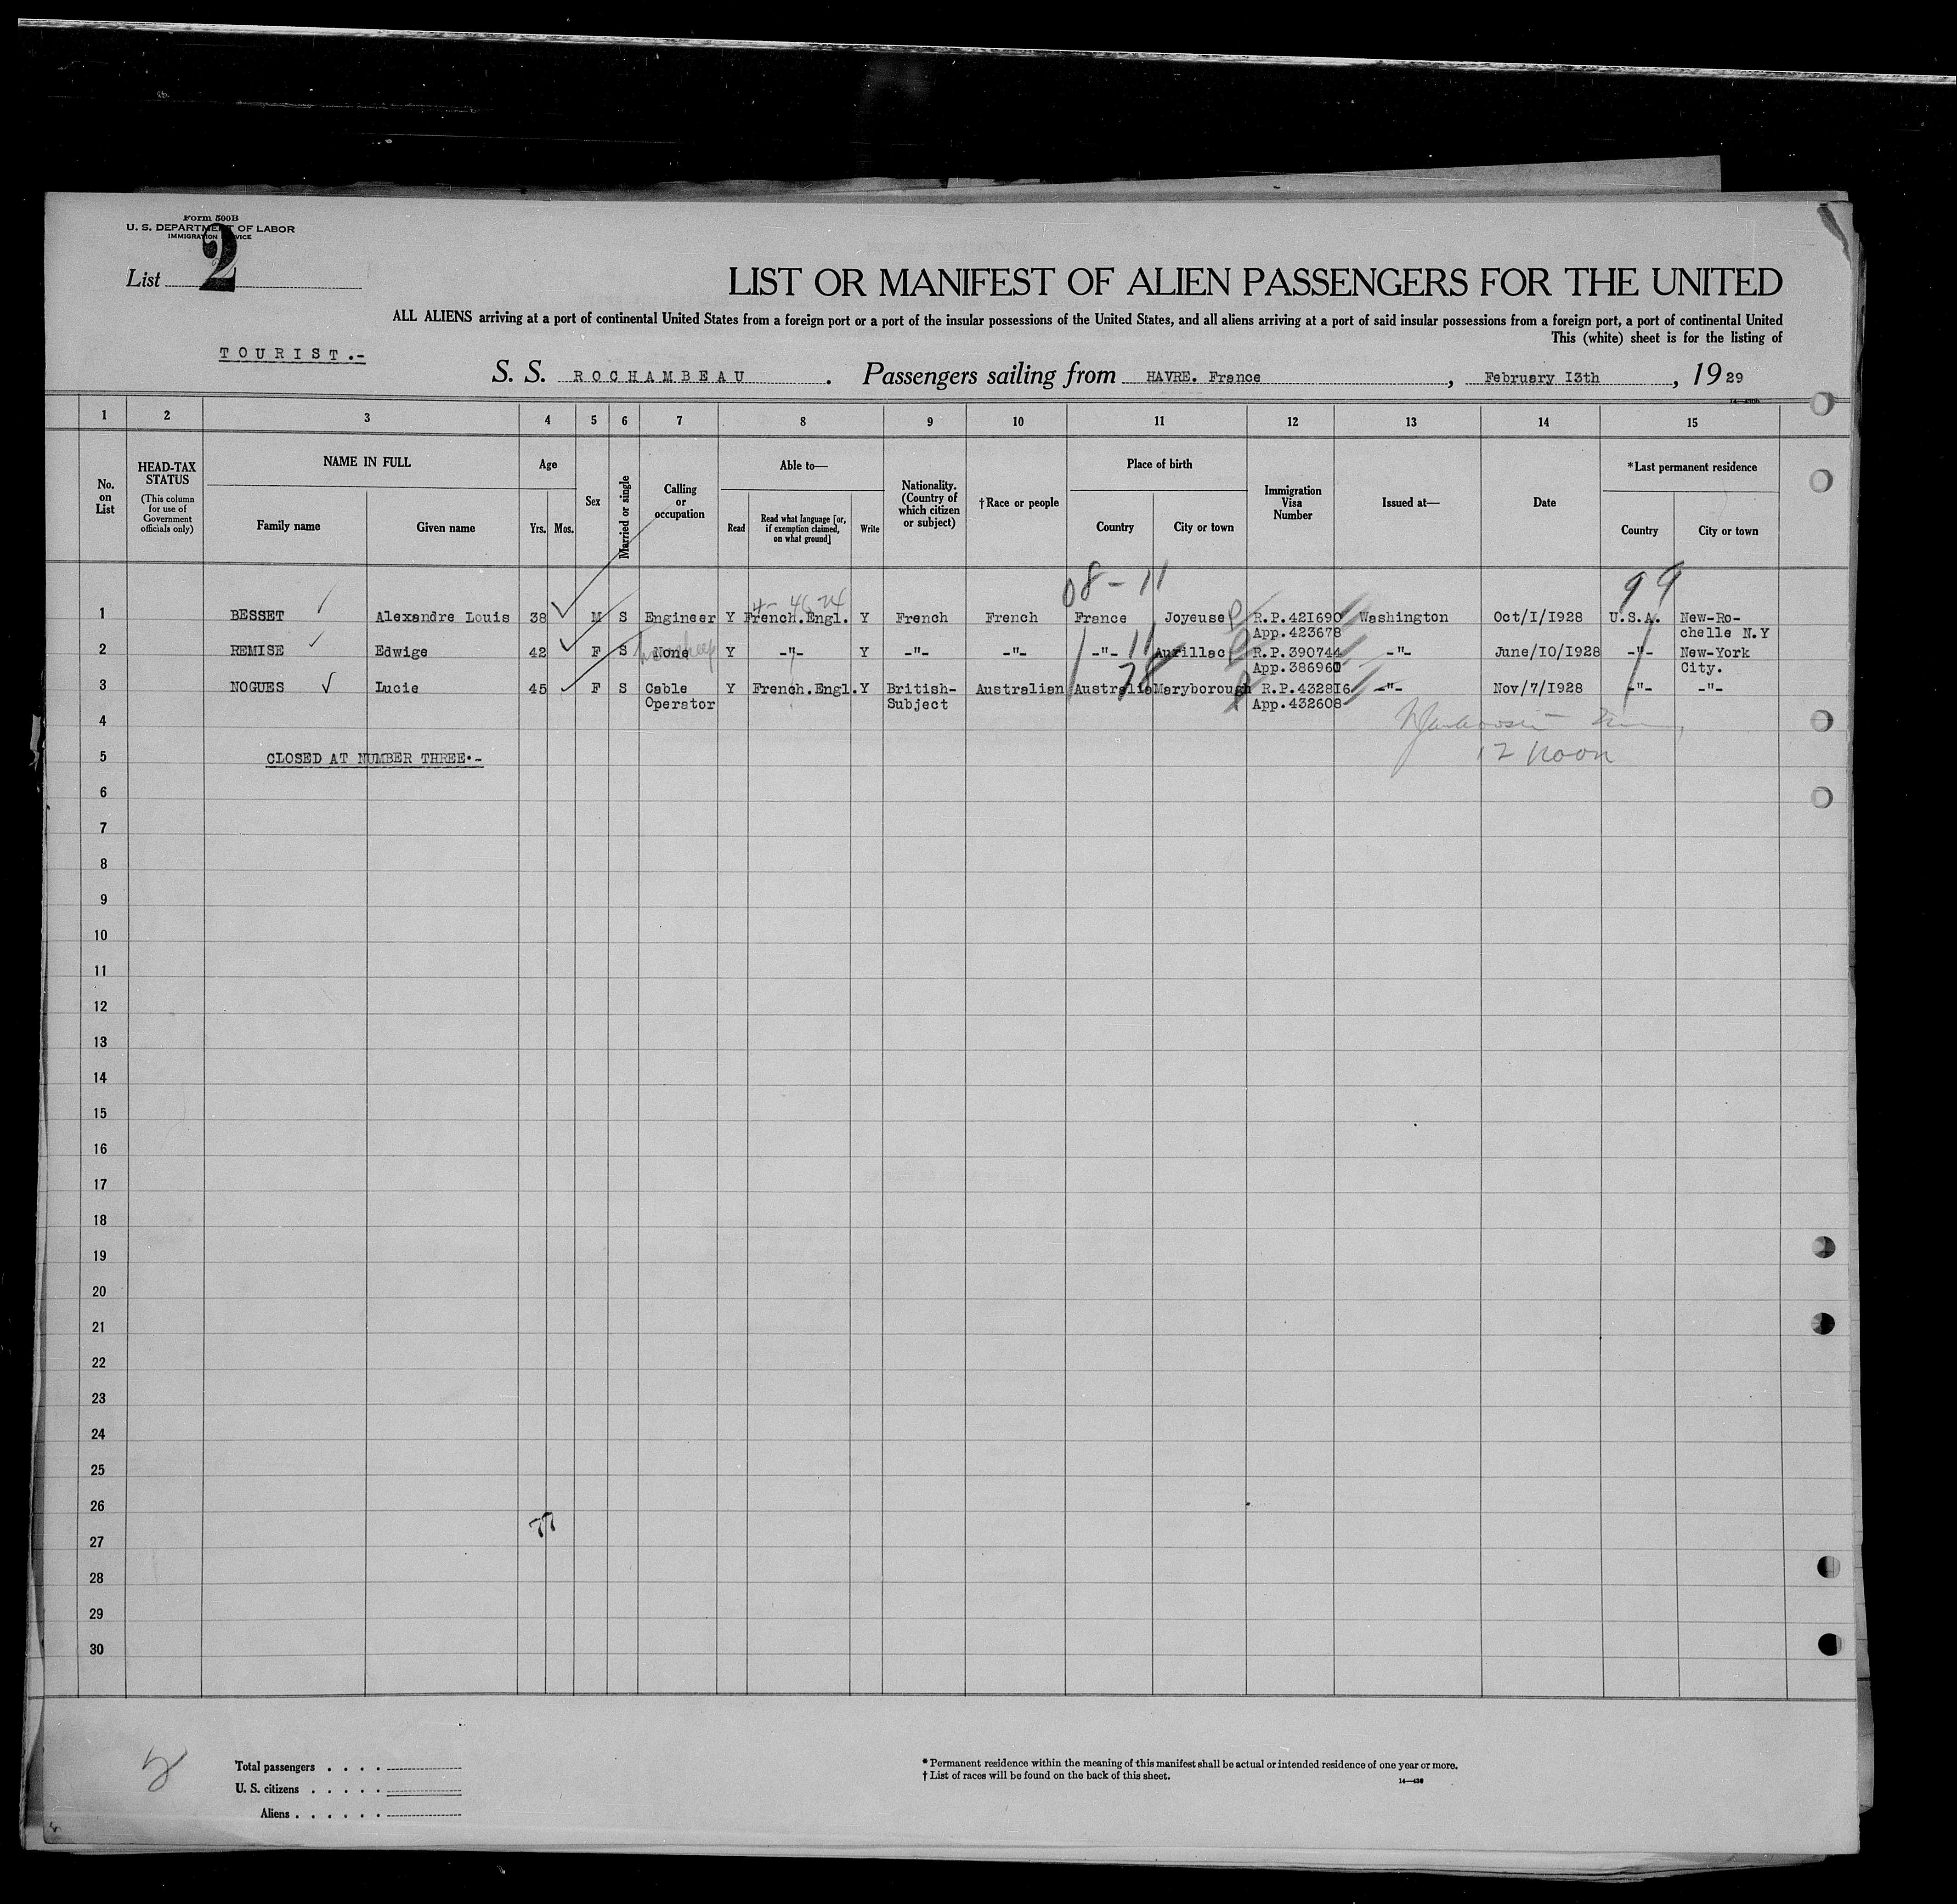 Form 500B
U. S. DEPARTMENT OF LABOR
IMMIGRATION SERVICE
2
List
LIST OR MANIFEST OF ALIEN PASSENGERS FOR THE UNITED
ALL ALIENS arriving at a port of continental United States from a foreign port or a port of the insular possessions of the United States, and all aliens arriving at a port of said insular possessions from a foreign port, a port of continental United
This (white) sheet is for the listing of
TOURIST.-
S. S. ROCHAMBEAU. Passengers sailing from HAVRE. France, February I3th, 1929
1 2 3 4 5 6 7 8 9 10 11 12 13 14 15
No. on List
HEAD-TAX STATUS
(This column for use of Government officials only)
NAME IN FULL
Family name Given name
Age
Yrs. Mos.
Sex
Married or single
Calling or occupation
Able to—
Read
Read what language [or, if exemption claimed, on what ground]
Write
Nationality. (Country of which citizen or subject)
†Race or people
Place of birth
Country City or town
Immigration Visa Number
Issued at—
Date
*Last permanent residence
Country City or town
08-11 99
1 BESSET Alexandre Louis 38 M S Engineer Y French.Engl. Y French French France Joyeuse R.P.42I690 Washington Oct/I/I928 U.S.A. New-Ro-
App.423678 chelle N.Y
2 REMISE Edwige 42 F S None Y -"- Y -"- -"- -"- 11 Aurillac R.P.390744 -"- June/IO/I928 -"- New-York
App.386960 City.
3 NOGUES Lucie 45 F S Cable Y French.Engl. Y British- Australian Australia Maryborough R.P.4328I6 -"- Nov/7/I928 -"- -"-
Operator Subject App.432608
78
4
12 noon
5 CLOSED AT NUMBER THREE.-
6
7
8
9
10
11
12
13
14
15
16
17
18
19
20
21
22
23
24
25
26
27
28
29
30
Total passengers . . . .
U. S. citizens . . . . .
Aliens . . . . . .
* Permanent residence within the meaning of this manifest shall be actual or intended residence of one year or more.
† List of races will be found on the back of this sheet.